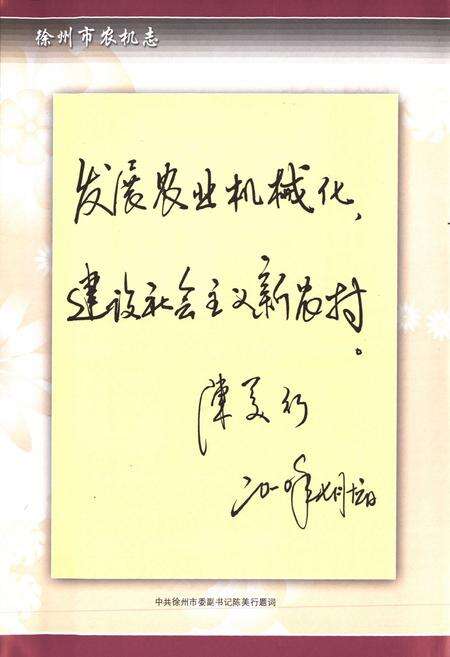 徐州市农机志
发展农业机械化，
建设社会主义新农村。
陈美行
二〇一〇年七月
中共徐州市委副书记陈美行题词